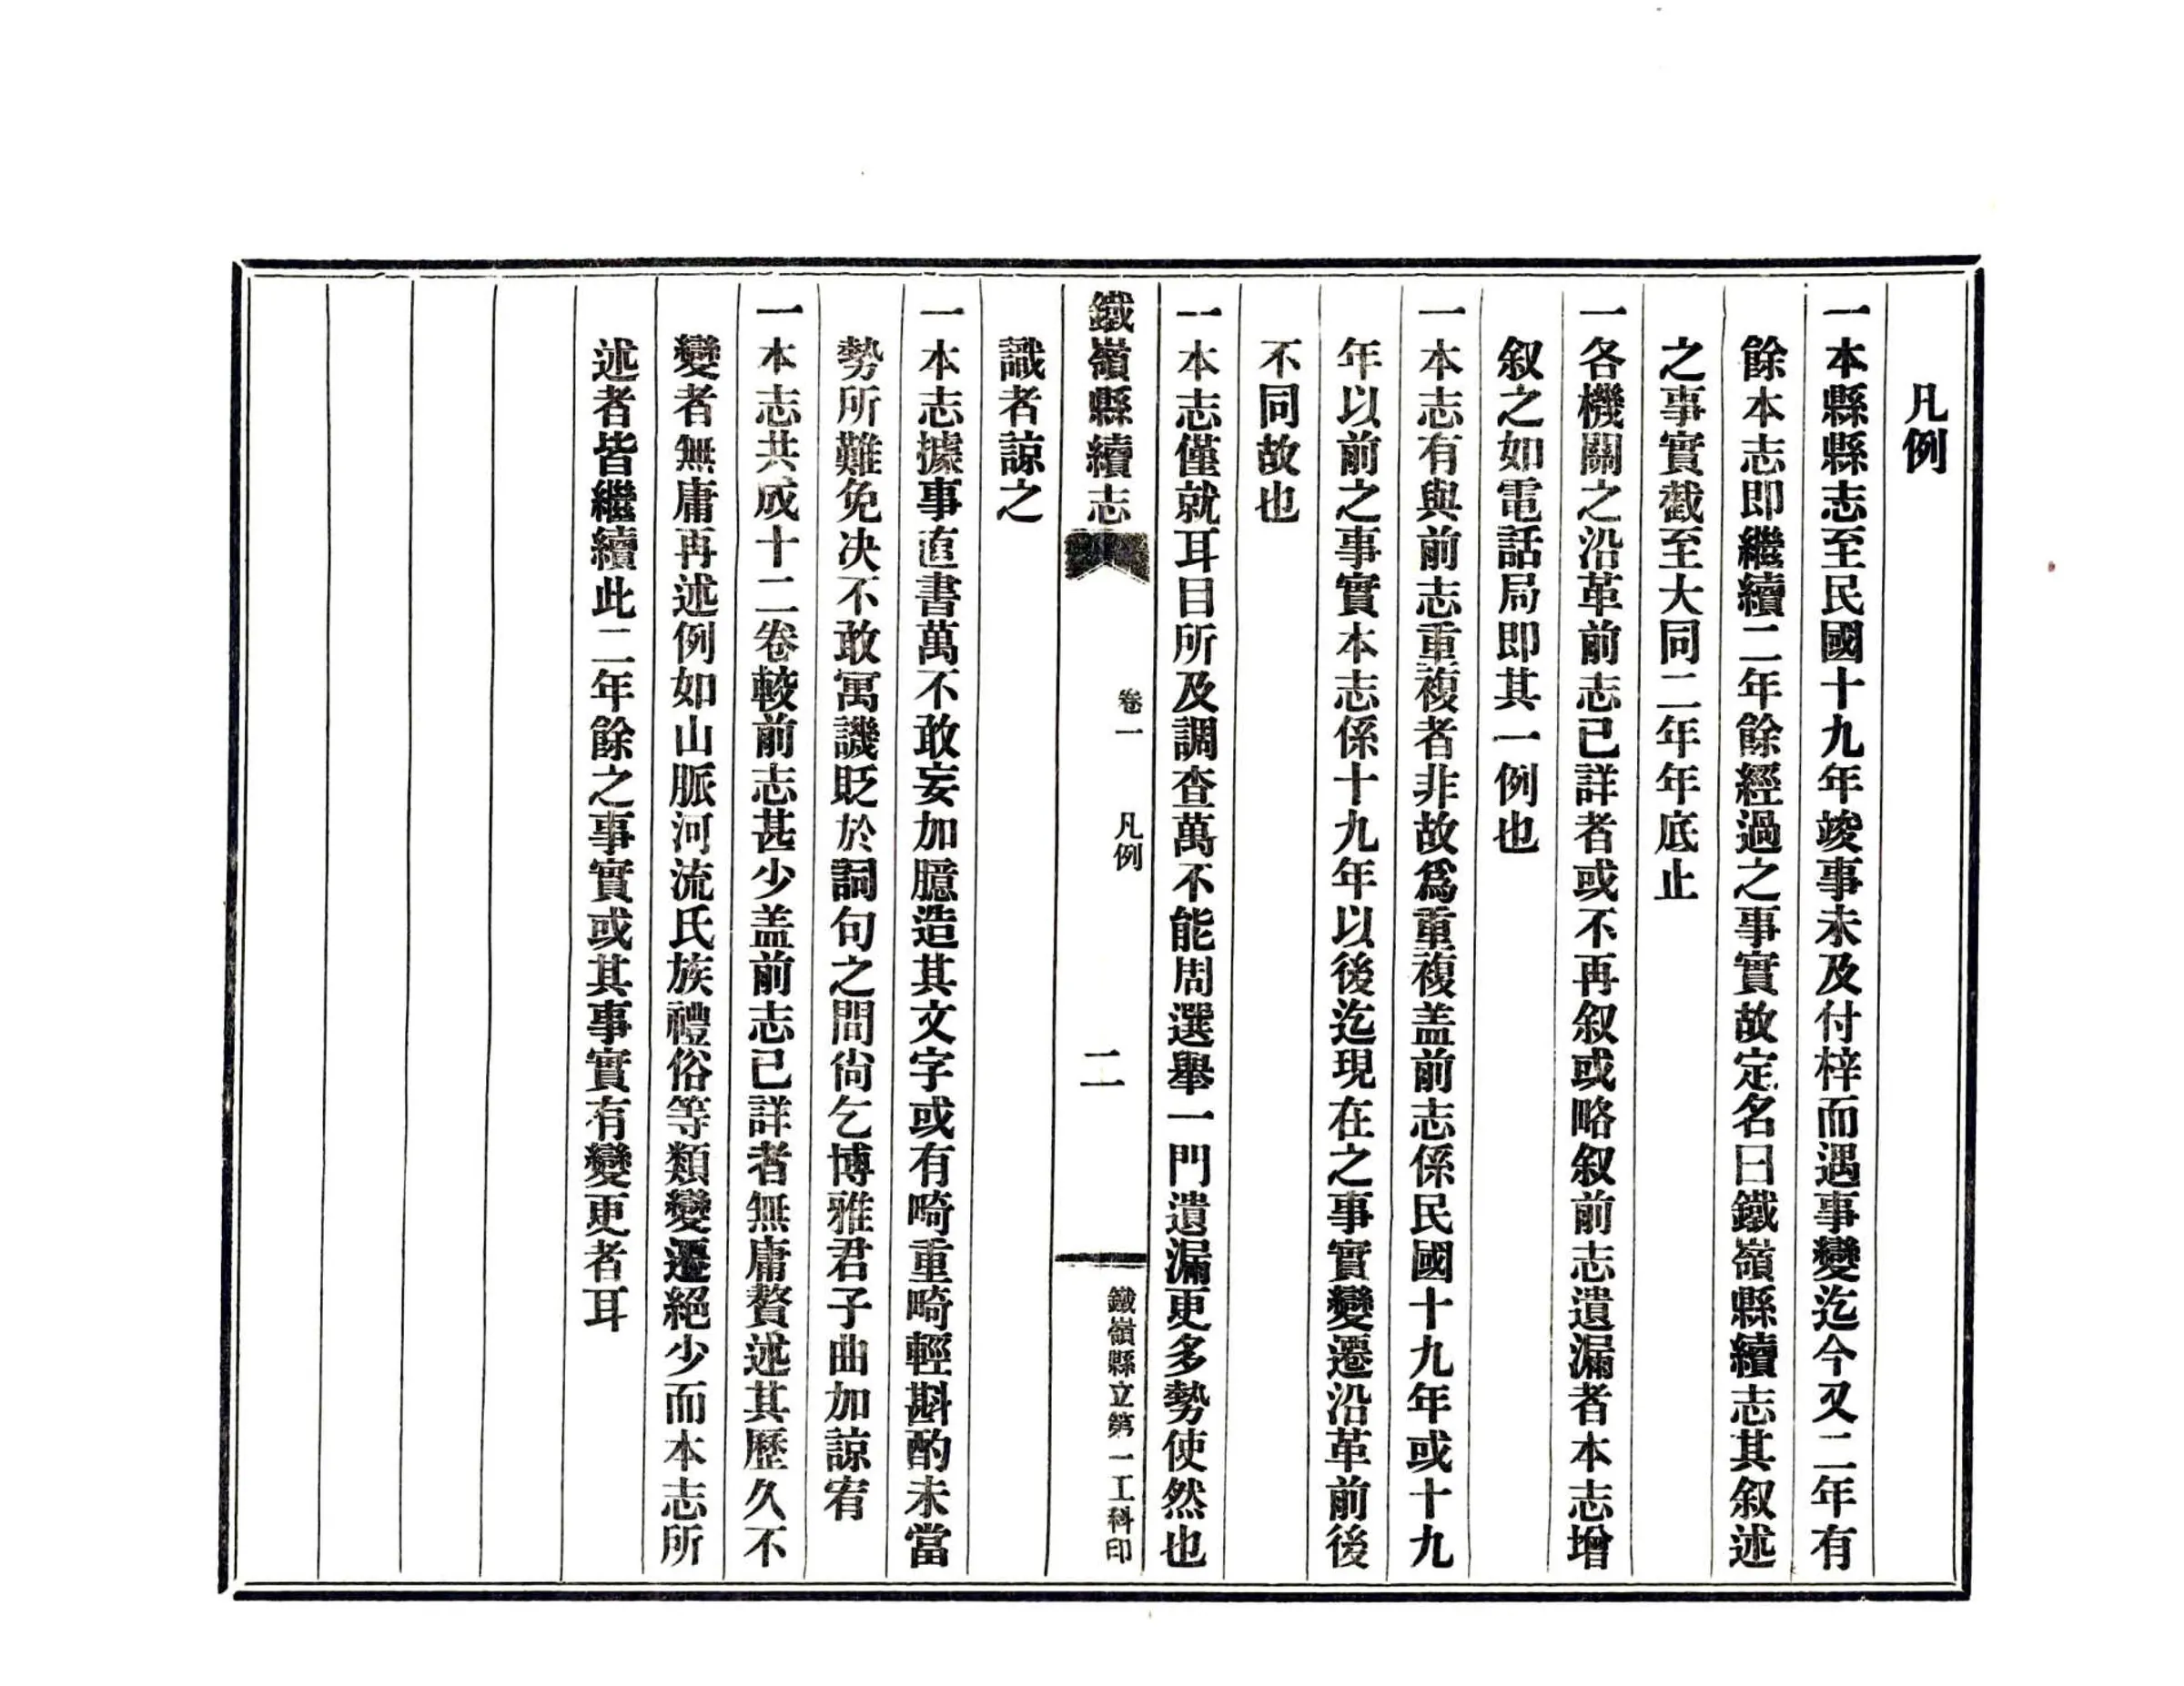 凡例
一本縣縣志至民國十九年竣事未及付梓而遇事變迄今又二年有
餘本志即繼續二年餘經過之事實故定名曰鐵嶺縣續志其叙述
之事實截至大同二年年底止
一各機關之沿革前志已詳者或不再叙或略叙前志遺漏者本志增
叙之如電話局即其一例也
一本志有與前志重複者非故爲重複盖前志係民國十九年或十九
年以前之事實本志係十九年以後迄現在之事實變遷沿革前後
不同故也
一本志僅就耳目所及調查萬不能周選舉一門遺漏更多勢使然也
鐵嶺縣續志
卷一 凡例
二
鐵嶺縣立第一工科印
識者諒之
一本志據事直書萬不敢妄加臆造其文字或有畸重畸輕斟酌未當
勢所難免决不敢寓譏貶於詞句之間尙乞博雅君子曲加諒宥
一本志共成十二卷較前志甚少盖前志已詳者無庸贅述其歷久不
變者無庸再述例如山脈河流氏族禮俗等類變遷絕少而本志所
述者皆繼續此二年餘之事實或其事實有變更者耳